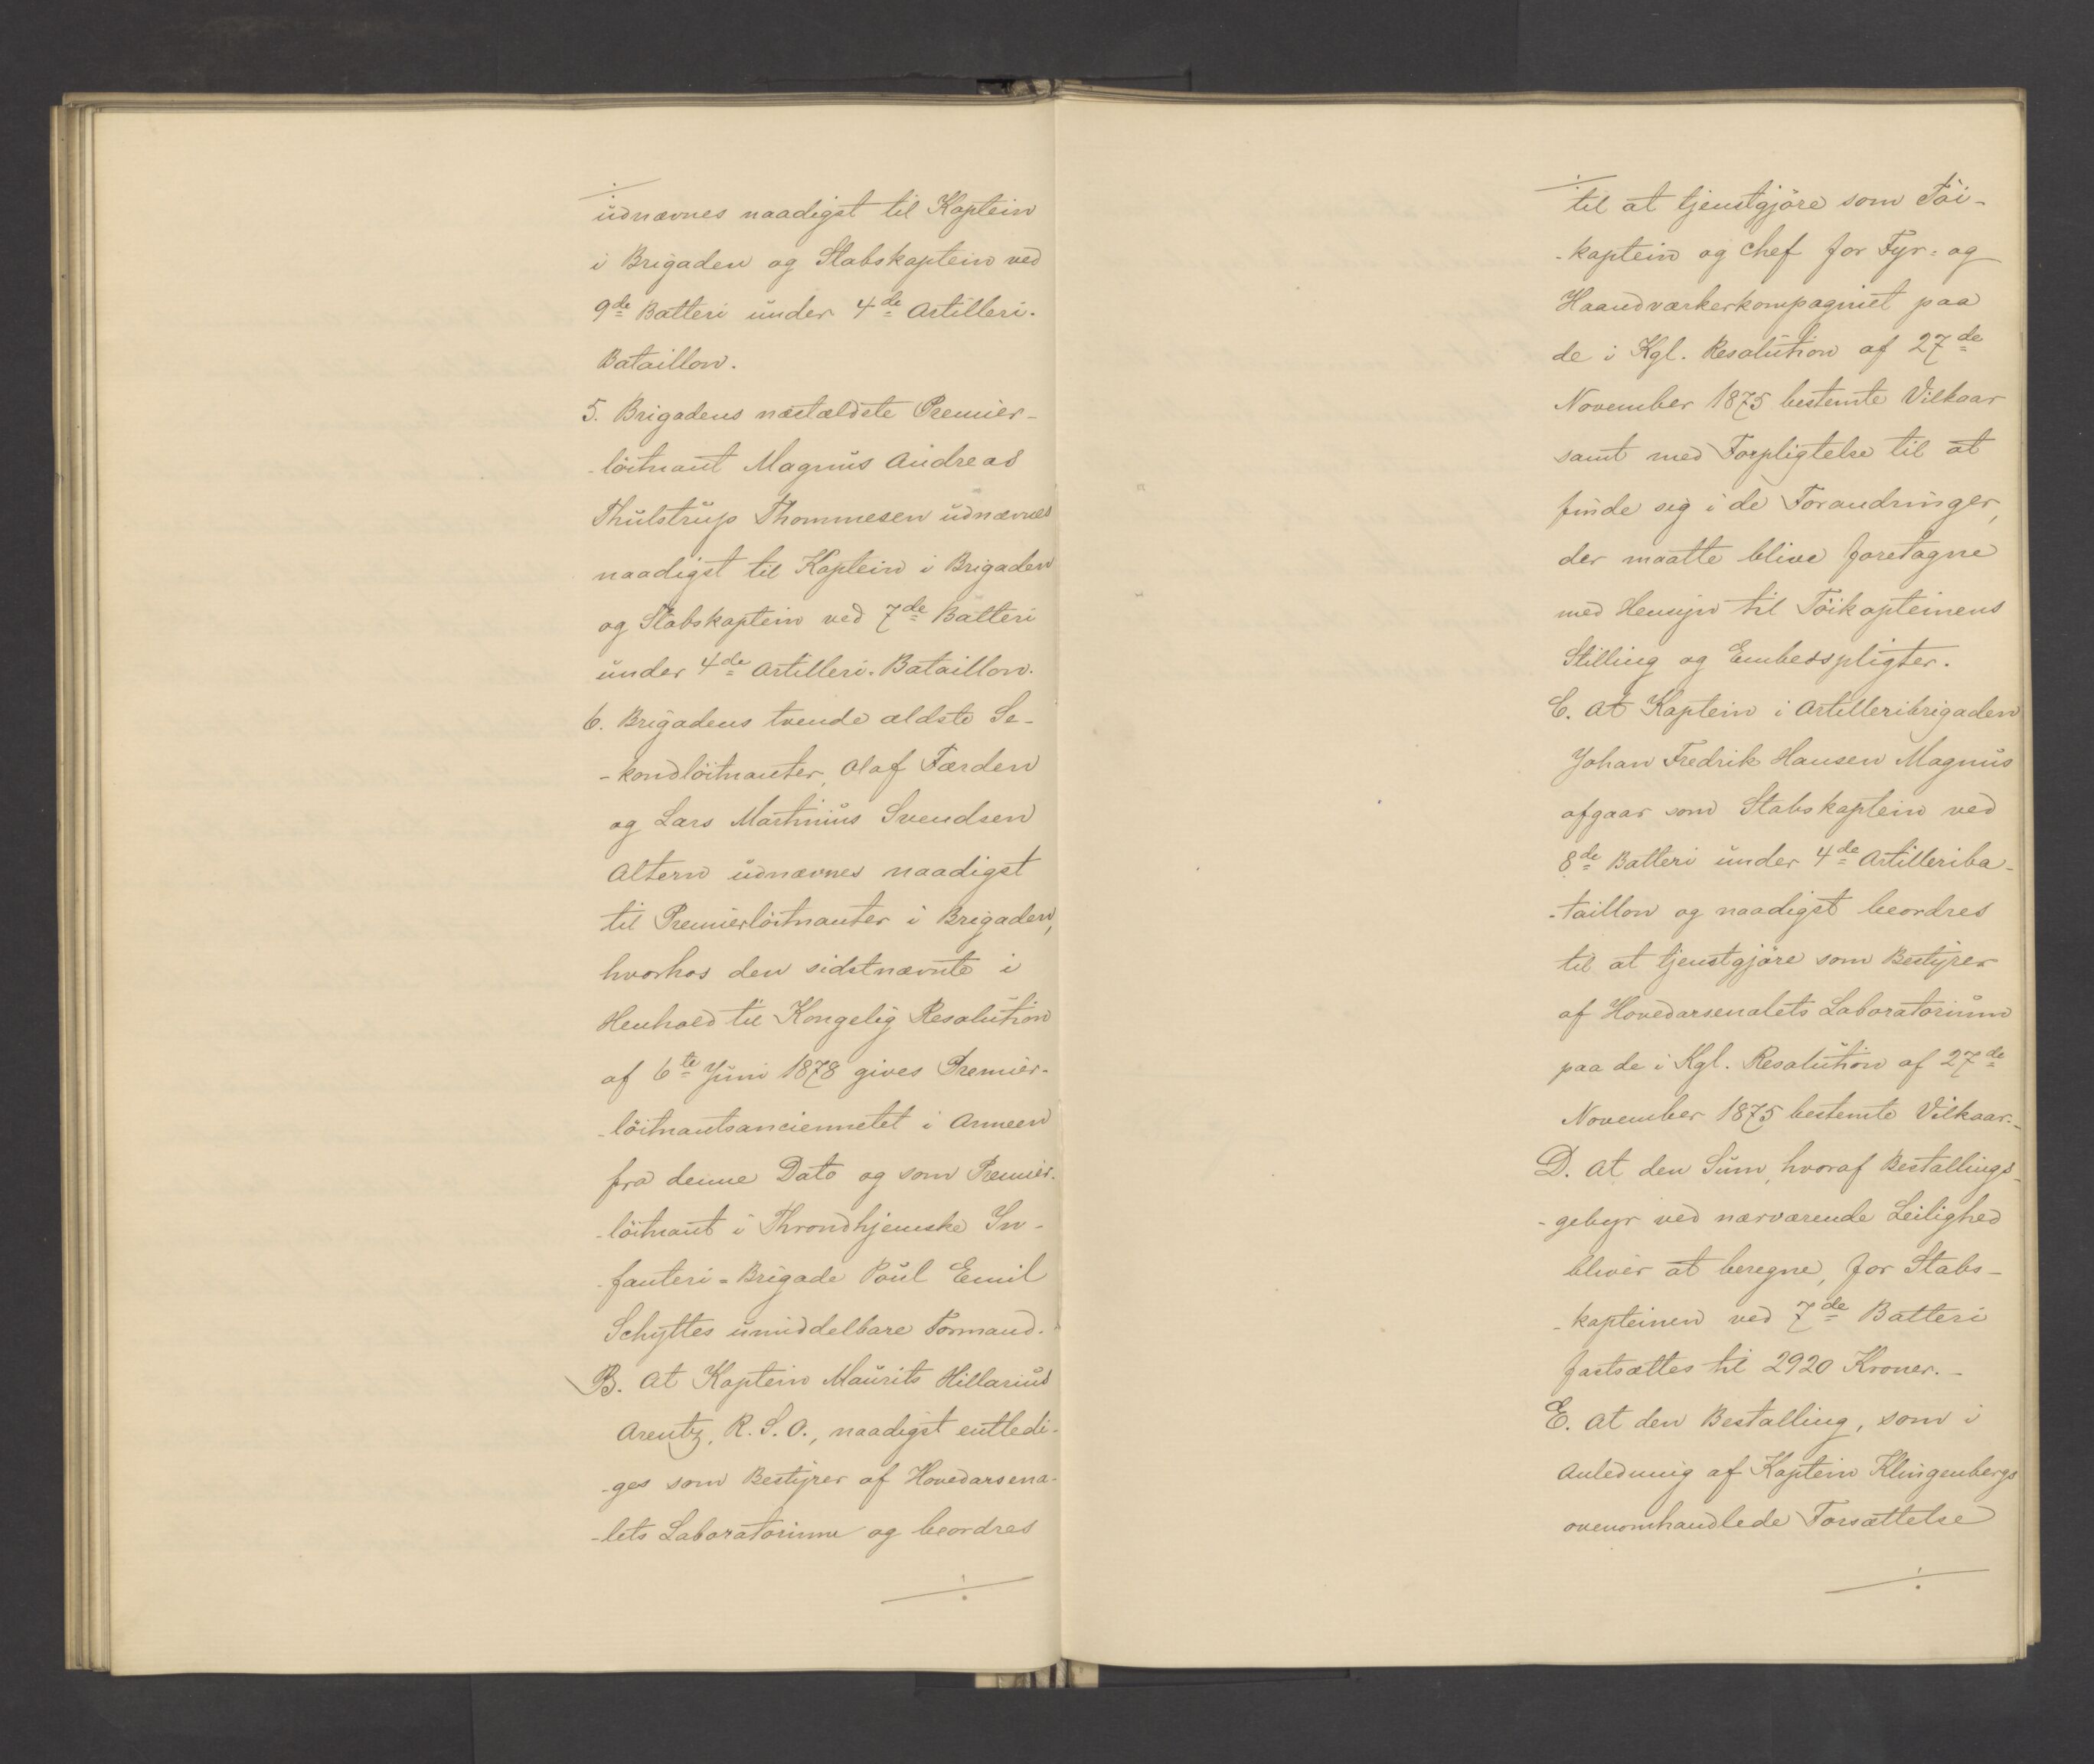 ./.
udnævnes naadigst til Kaptein
i Brigaden og Stabskaptein ved
9de Batteri under 4de Artilleri-
Bataillon.
5. Brigadens næstældste Premier-
-löitnant Magnus Andreas
Thulstrup Thommesen udnævnes
naadigst til Kaptein i Brigaden
og Stabskaptein ved 7de Batteri
under 4de Artilleri-Bataillon.
6. Brigadens tvende ældste Se-
-kondlöitnanter, Olaf Færden
og Lars Martinius Svendsen
Altern udnævnes naadigst
til Premierlöitnanter i Brigaden,
hvorhos den sidstnævnte i
Henhold til Kongelig Resolution
af 6te Juni 1878 gives Premier-
-löitnantsanciennetet i Armeen
fra denne Dato og som Premier-
-löitnant i Throndhjemske In-
-fanteri-Brigade Poul Emil
Schyttes umiddelbare Formand.
B. At Kaptein Maurits Hillarius
Arentz, R. S. O., naadigst entledi-
-ges som Bestyrer af Hovedarsena-
-lets Laboratorium og beordres
./.
./.
til at tjenstgjöre som Töi-
-kaptein og Chef for Fyr- og
Haandværkerkompagniet paa
de i Kgl. Resolution af 27de
November 1875 bestemte Vilkaar
samt med Forpligtelse til at
finde sig i de Forandringer,
der maatte blive foretagne
med Hensyn til Töikapteinens
Stilling og Embedspligter.
C. At Kaptein i Artilleribrigaden
Johan Fredrik Hansen Magnus
afgaar som Stabskaptein ved
8de Batteri under 4de Artilleriba-
-taillon og naadigst beordres
til at tjenstgjöre som Bestyrer
af Hovedarsenalets Laboratorium
paa de i Kgl. Resolution af 27de
November 1875 bestemte Vilkaar.-
D. At den Sum, hvoraf Bestallings-
-gebyr ved nærværende Leilighed
bliver at beregne, for Stabs-
-kapteinen ved 7de Batteri
fastsættes til 2920 Kroner.-
E. At den Bestalling, som i
Anledning af Kaptein Klingenbergs
ovenomhandlede Forsættelse
./.